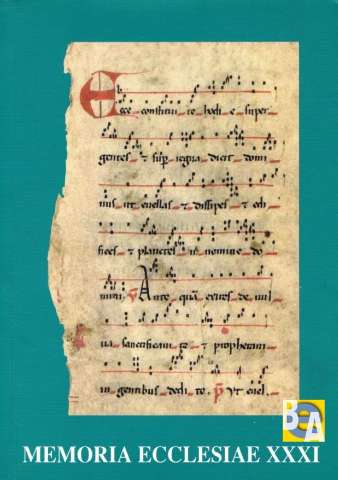 Ecce constitui te hodi e super
gentes ⁊ sup regna dicit domi
nus ut euellas ⁊ dissipes ⁊ edi
fices ⁊ plantes in nomine do
mini ℣ Ante quā exires de uul
ua sanctificaui te ⁊ prophetam
in gentibus dedi te. Vt euel
BEA
MEMORIA ECCLESIAE XXXI